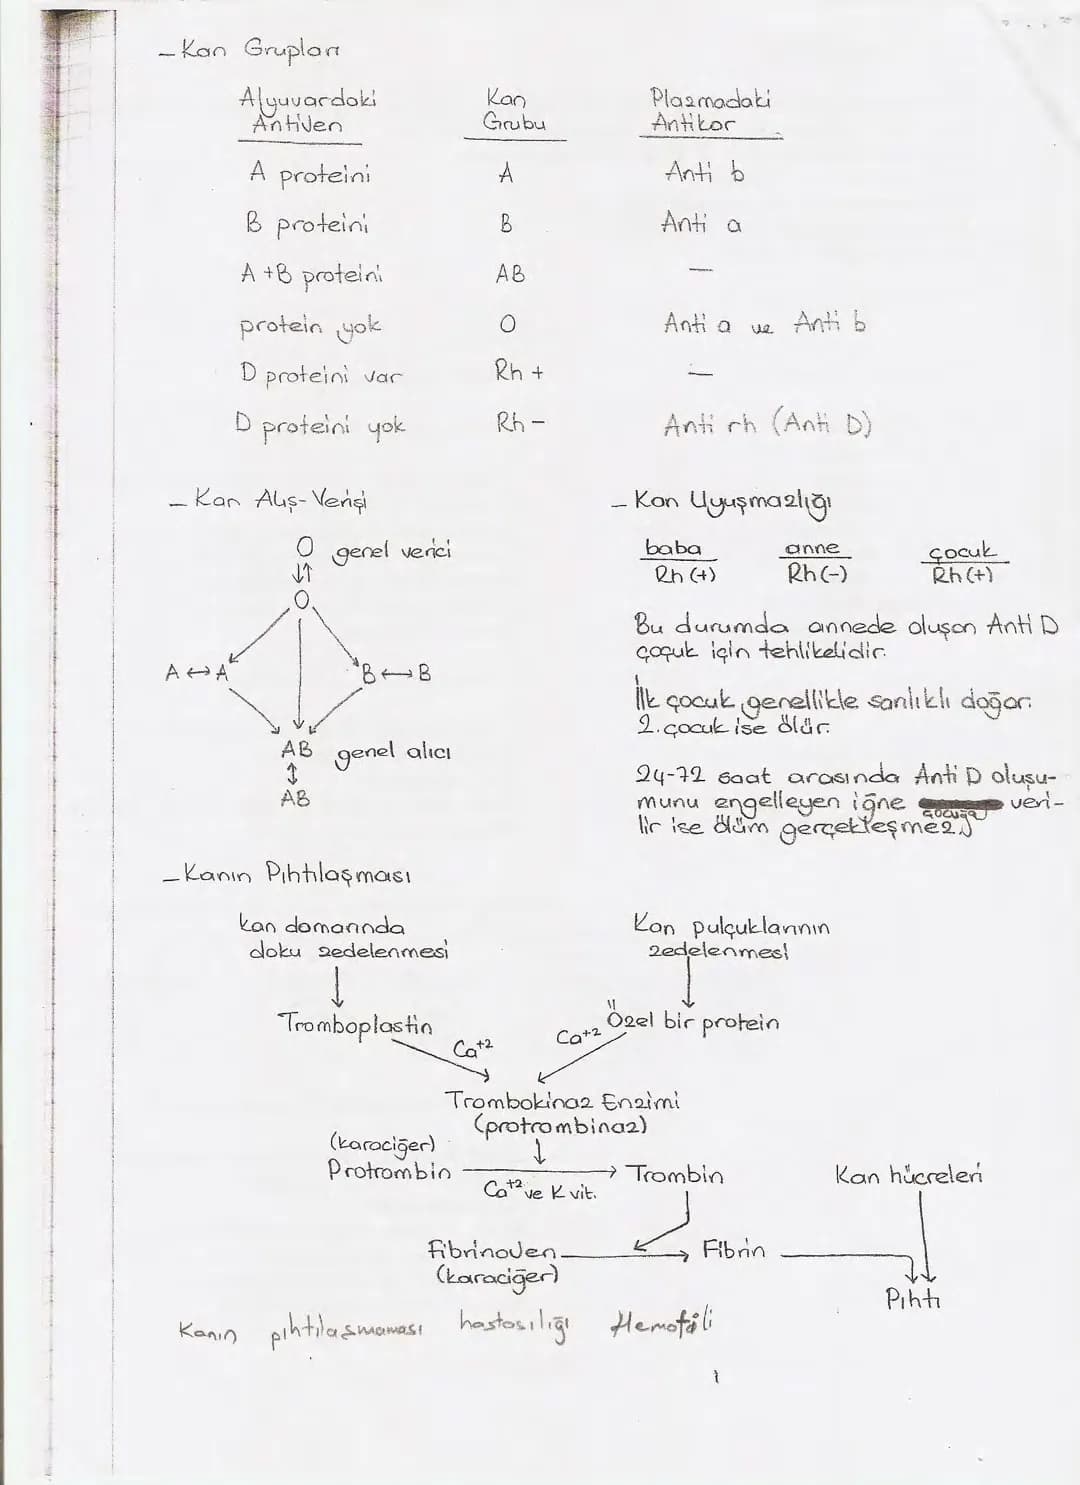 - Kan Grupları
Alyuvardaki Kan Plazmadaki
Antijen Grubu Antikor
A proteini A Anti b
B proteini B Anti a
A+B proteini AB —
protein yok O Anti a ve Anti b
D proteini var Rh + —
D proteini yok Rh - Anti rh (Anti D)
- Kan Alış-Verişi
O genel verici
O
A ↔ A B ↔ B
AB genel alıcı
AB
- Kan Uyuşmazlığı
baba anne çocuk
Rh (+) Rh (-) Rh (+)
Bu durumda annede oluşan Anti D
çoçuk için tehlikelidir.
İlk çocuk genellikle sanlıklı doğar.
2. çocuk ise ölür.
24-72 saat arasında Anti D oluşu-
munu engelleyen iğne çocuğa veri-
lir ise ölüm gerçekleşmez.
- Kanın Pıhtılaşması
kan damarında Kan pulçuklarının
doku zedelenmesi zedelenmesi
Tromboplastin Özel bir protein
Ca+2 Ca+2
Trombokinaz Enzimi
(protrombinaz)
(karaciğer)
Protrombin → Trombin Kan hücreleri
Ca+2 ve K vit.
Fibrinojen → Fibrin
(karaciğer)
Pıhtı
Kanın pıhtılaşmaması hastasılığı Hemofili